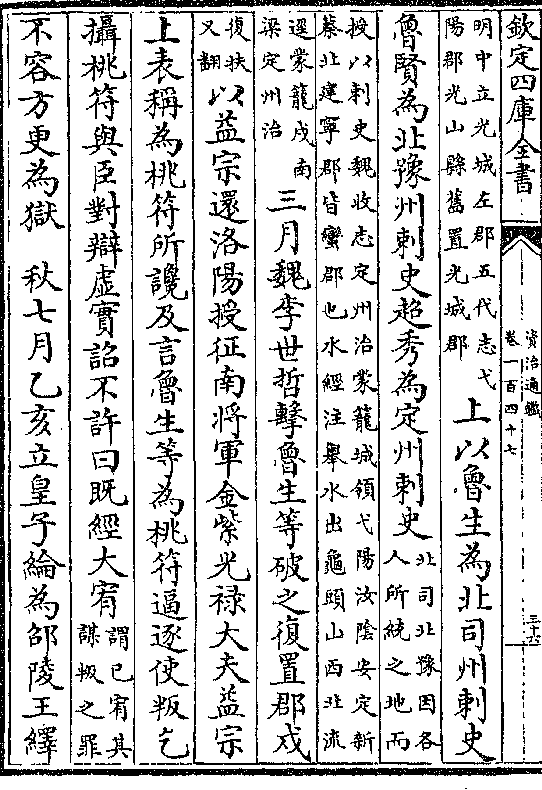 欽定四庫全書
資治通鑑
卷一百四十七
三十六
明中立光城左郡五代志弋
陽郡光山縣舊置光城郡
上以魯生為北司州刺史
魯賢為北豫州刺史超秀為定州刺史
北司北豫因各
人所統之地而
授以刺史魏收志定州治蒙籠城領弋陽汝陰安定新
蔡北建寧郡皆蠻郡也水經注舉水出龜頭山西北流
逕蒙籠戍南
梁定州治
三月魏李世哲擊魯生等破之復置郡戍
復扶
又翻
以益宗還洛陽授征南將軍金紫光禄大夫益宗
上表稱為桃符所讒及言魯生等為桃符逼逐使叛乞
攝桃符與臣對辯虛實詔不許曰既經大宥
謂已宥其
謀叛之罪
不容方更為獄 秋七月乙亥立皇子綸為邵陵王繹